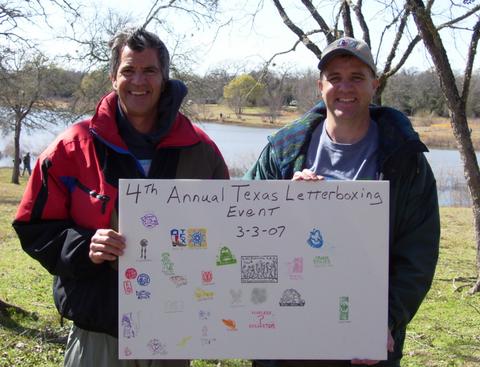 4th Annual Texas Letterboxing
Event
3-3-07